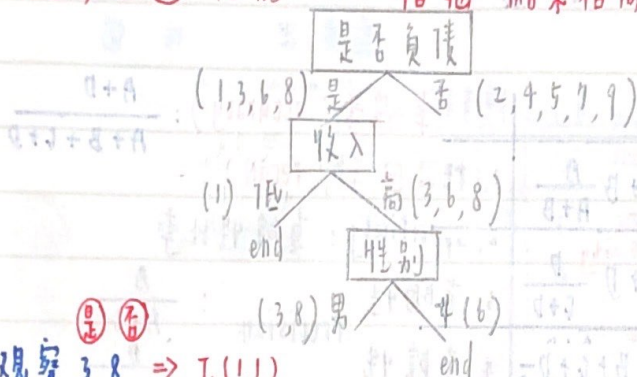 是否負債
(1,3,6,8) 是 否 (2,4,5,7,9)
收入
(1) 低 高 (3,6,8)
end
性別
(3,8) 男 女 (6)
end
是 否
觀察 3,8 => I(1,1)